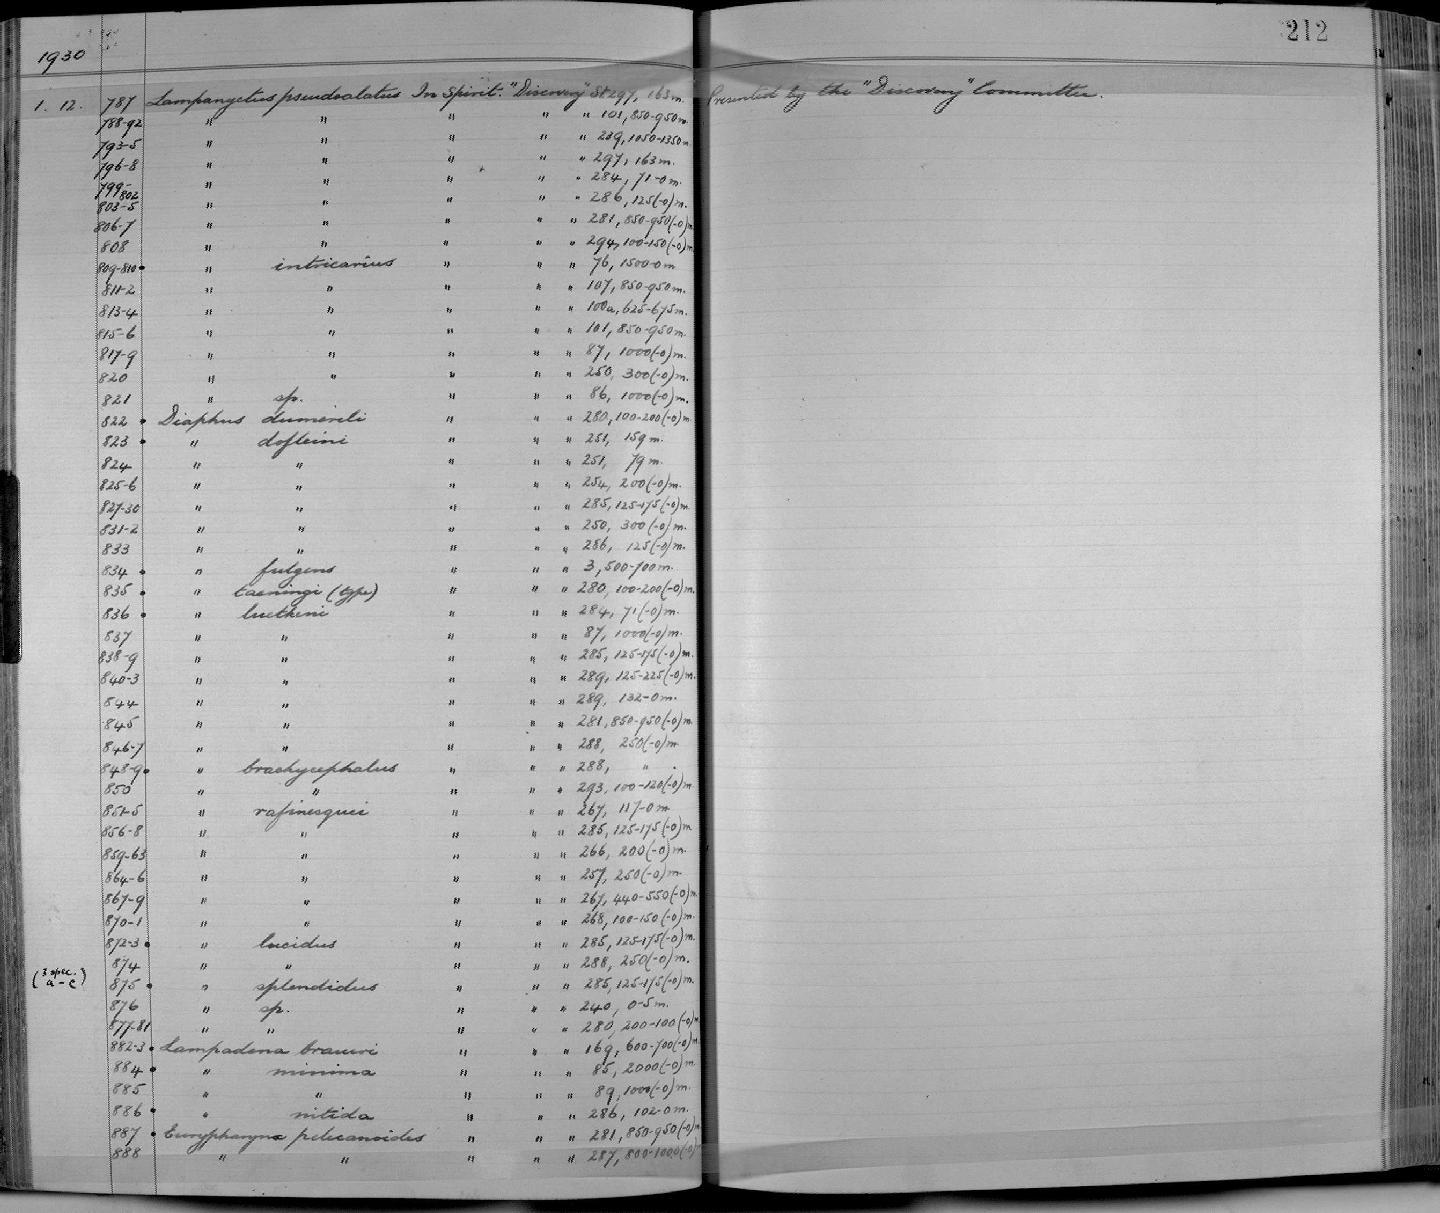 212
1930
1. 12. 787 Lampanyctus pseudoalatus In Spirit. "Discovery" St 297, 163 m. Presented by the "Discovery" Committee.
788-92 " " " " " 101, 850-950 m.
793-5 " " " " " 239, 1050-1350 m
796-8 " " " " " 297, 163 m.
799-802 " " " " " 284, 71-0 m.
803-5 " " " " " 286, 125(-0) m.
806-7 " " " " " 281, 850-950(-0) m
808 " " " " " 294, 100-150(-0) m
809-810 • " intricarius " " " 76, 1500-0 m
811-2 " " " " " 107, 850-950 m.
813-4 " " " " " 100a, 625-675 m.
815-6 " " " " " 101, 850-950 m.
817-9 " " " " " 87, 1000(-0) m.
820 " " " " " 250, 300(-0) m.
821 " sp. " " " 86, 1000(-0) m.
822 • Diaphus dumerili " " " 280, 100-200(-0) m
823 • " dofleini " " " 251, 159 m.
824 " " " " " 251, 79 m.
825-6 " " " " " 254, 200(-0) m.
827-30 " " " " " 285, 125-175(-0) m
831-2 " " " " " 250, 300(-0) m.
833 " " " " " 286, 125(-0) m.
834 • " fulgens " " " 3, 500-700 m.
835 • " taaningi (type) " " " 280, 100-200(-0) m.
836 • " luetkeni " " " 284, 71(-0) m.
837 " " " " " 87, 1000(-0) m.
838-9 " " " " " 285, 125-175(-0) m.
840-3 " " " " " 289, 125-225(-0) m.
844 " " " " " 289, 132-0 m.
845 " " " " " 281, 850-950(-0) m.
846-7 " " " " " 288, 250(-0) m
848-9 • " brachycephalus " " " 288, " .
850 " " " " " 293, 100-120(-0) m
851-5 " rafinesquei " " " 267, 117-0 m
856-8 " " " " " 285, 125-175(-0) m
859-63 " " " " " 266, 200(-0) m.
864-6 " " " " " 257, 250(-0) m.
867-9 " " " " " 267, 440-550(-0) m
870-1 " " " " " 268, 100-150(-0) m.
872-3 • " lucidus " " " 285, 125-175(-0) m.
874 " " " " " 288, 250(-0) m.
(3 spec. a-c) 875 • " splendidus " " " 285, 125-175(-0) m.
876 " sp. " " " 240, 0-5 m.
877-81 " " " " " 280, 200-100(-0) m
882-3 • Lampadena braueri " " " 169, 600-700(-0) m
884 • " minima " " " 85, 2000(-0) m.
885 " " " " " 89, 1000(-0) m.
886 • " nitida " " " 286, 102-0 m.
887 • Eurypharynx pelecanoides " " " 281, 850-950(-0) m
888 " " " " " 287, 800-1000(-0)